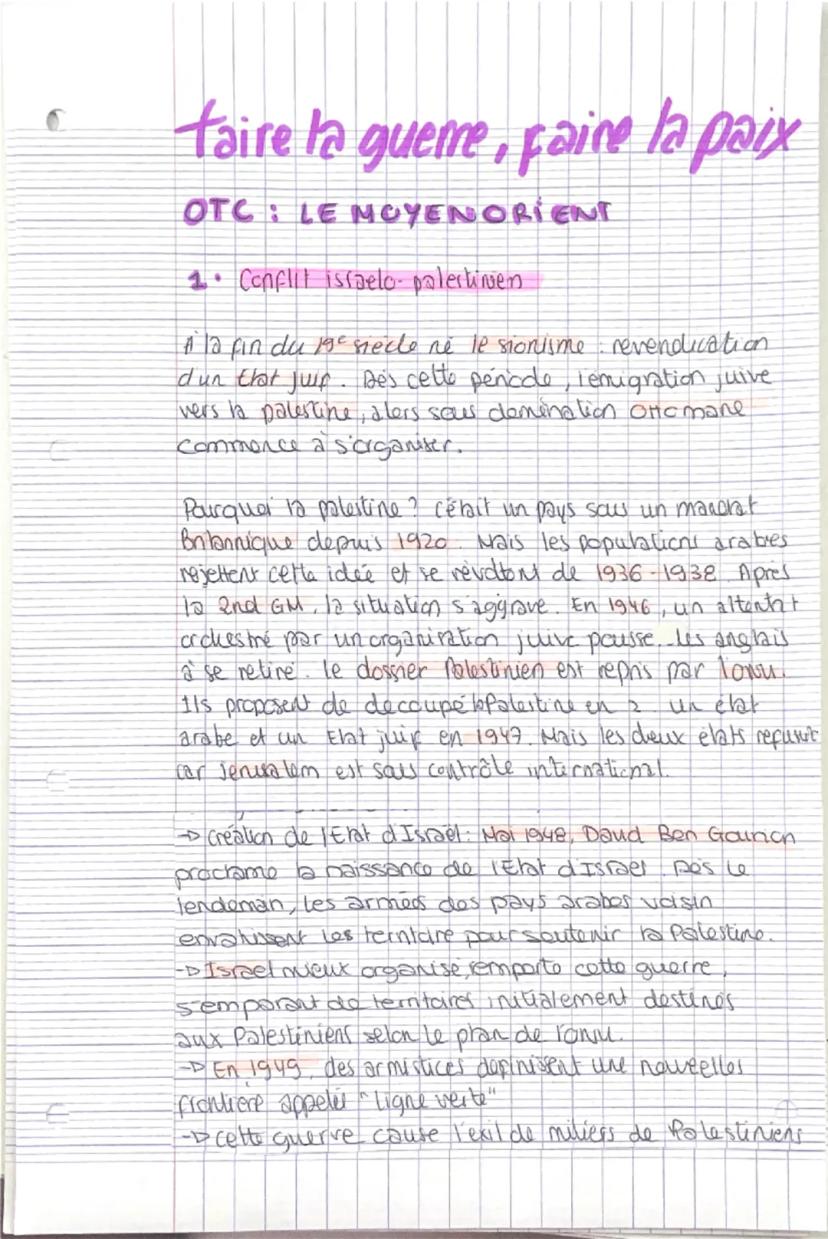 faire la guerre, faire la paix
OTC : LE MOYEN ORIENT
1. Conflit israelo-palestinien
A la fin du 19e siècle né le sionisme : revendication
d'un Etat juif. Dès cette période, l'émigration juive
vers la palestine, alors sous domination Ottomane
commence à s'organiser.
Pourquoi la palestine ? c'était un pays sous un mandat
Britannique depuis 1920. Mais les populations arabes
rejettent cette idée et se révoltent de 1936-1938. Après
la 2nd GM, la situation s'aggrave. En 1946, un attentat
orchestré par un organisation juive pousse les anglais
à se retiré. le dossier Palestinien est repris par l'onu.
Ils proposent de découpé la Palestine en 2 un état
arabe et un Etat juif en 1947. Mais les deux états refusent
car Jerusalem est sous contrôle international.
→ création de l'Etat d'Israël : Mai 1948, David Ben Gourion
proclame la naissance de l'Etat d'Israel. Dès le
lendemain, les armées des pays arabes voisin
envahissent les territoire pour soutenir la Palestine.
→ Israel mieux organisé, remporte cette guerre,
s'emparant de territoires initialement destinés
aux Palestiniens selon le plan de l'onu.
→ En 1949, des armistices définissent une nouvelles
frontière appelés "ligne verte"
→ cette guerre cause l'exil de miliers de Palestiniens